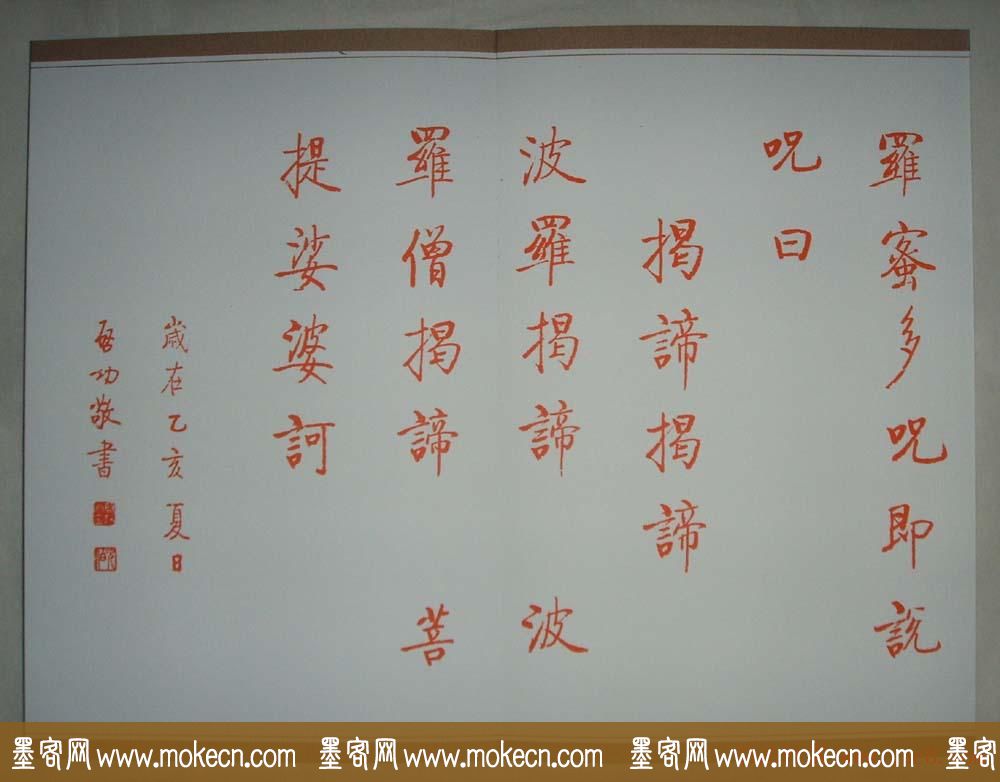 羅蜜多呪即説
呪曰
揭諦揭諦
波羅揭諦 波
羅僧揭諦 菩
提娑婆訶
歲在乙亥夏日
启功敬書
墨客网 www.mokecn.com 墨客网 www.mokecn.com 墨客网 www.mokecn.com 墨客